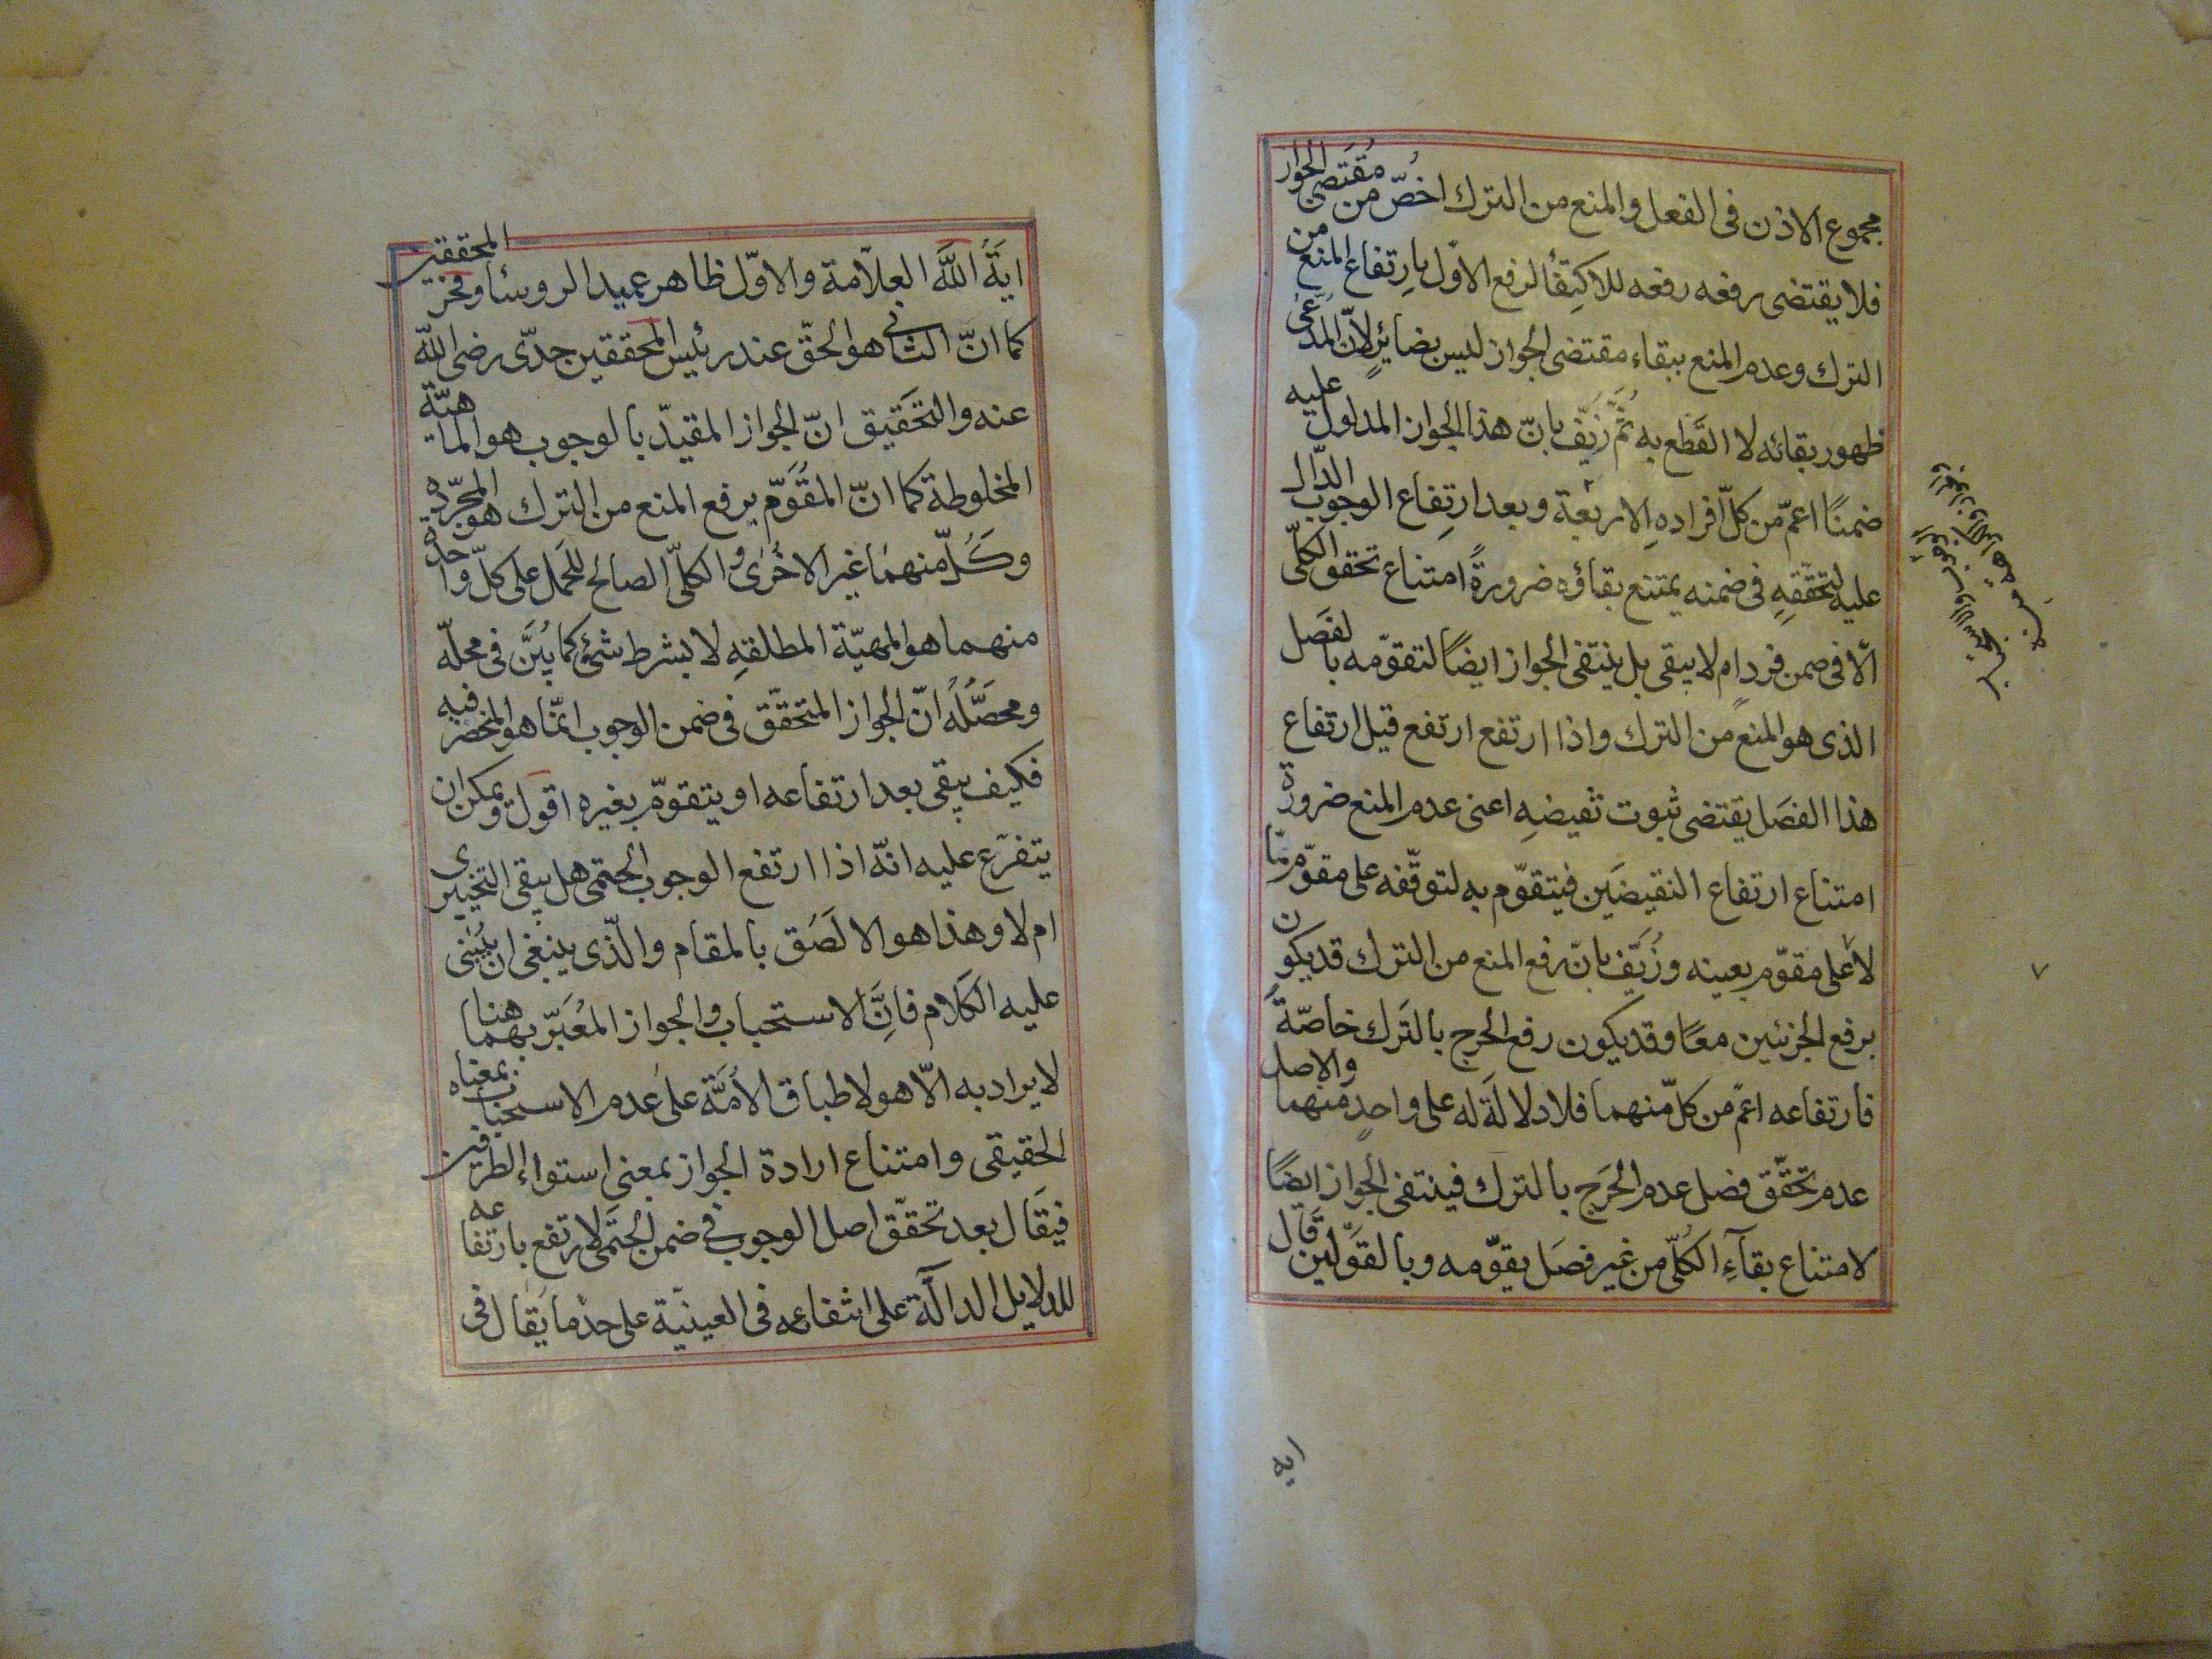 مجموع الاذن فى الفعل والمنع من الترك اخصّ من مُقتَضى الجواز
فلا يقتضى رفعه رفعه للاكتِفأ لرفع الاوّل بارِتفاع المنع من
الترك وعدم المنع ببقاء مقتضى الجواز ليس بضائرٍ لانّ المدّعى
ظهور بقائه لا القَطع به ثُمَّ زيّف بانّ هذا الجواز المدلول عليه
ضمنًا اعمّ من كلّ افرادهِ الاربعَة وبعد ارتِفاع الوجوب الدّال
عليه لتحقّقهِ فى ضمنه يمتنع بقاؤه ضرورةً امتناع تحقق الكلّى
الّا فى ضمن فردٍ ام لا يبقى بل ينتفى الجواز ايضًا لتقوّمه بالفَصل
الذى هو المنع من الترك واذا ارتفع ارتفع قيل ارتفاع
هذا الفصَل يقتضى ثبوت نقيضهِ اعنى عدم المنع ضرورة
امتناع ارتفاع النقيضَين فيتقوّم به لتوقّفه على مقوّم مّا
لا على مقوّم بعينه وزُيّف بانّ رفع المنع من الترك قد يكون
برفع الجزئين معًا وقد يكون رفع الحرج بالتَرك خاصّةً
فارتفاعه اعمّ من كلّ منهما فلا دلالَة له على واحدٍ منهما والاصل
عدم تحقّق فصل عدم الحَرَج بالترك فينتفى الجواز ايضًا
لامتناع بقآءِ الكُلّى من غير فصَل يقوّمه وبالقَولَين قال
ايَةُ اللَّه العلّامة والاوّل ظاهر عميد الروسَا وفخر المحققين
كما انّ الثانى هو الحقّ عند رئيس المحققين جدّى رضى اللّه
عنه والتحَقيق انّ الجواز المقيدّ بالوجوب هو الماهيّة
المخلوطة كما انّ المقَوّم برفع المنع من الترك هو المجرّدة
وكلّ منهمَا غير الاخُرى والكلىّ الصالح للحَمل على كلّ واحدة
منهما هو المهيّة المطلقةِ لا بشرط شئ كما بُيَّن فى محلّه
ومحصَّلُهُ انّ الجواز المتحقّق فى ضمن الوجوب انمّا هو المنحصر فيه
فكيف يبقى بعد ارتفاعه او يتقوّم بغيره اقول ويمكن ان
يتفرّع عليه انّه اذا ارتفع الوجوب الحتمى هل يبقى التخييرى
ام لا وهذا هو الالصَق بالمقام والّذى ينبغى ان يُبتنى
عليه الكَلام فانَِّ الاستحباب والجواز المعُبَرّ بهما هنا
لا يراد به الّا هو لاطباق الأمَّة على عدم الاستحباب بمعناه
الحقيقى وامتناع ارادة الجواز بمعنى استواء الطرفين
فيقَال بعد تحقّق اصل الوجوب فى ضمن الحُتَمى لا يرتفع بارتفاعه
للدلايل الدالّة على انتفاعه فى العينيّة على حدّ ما يقال فى